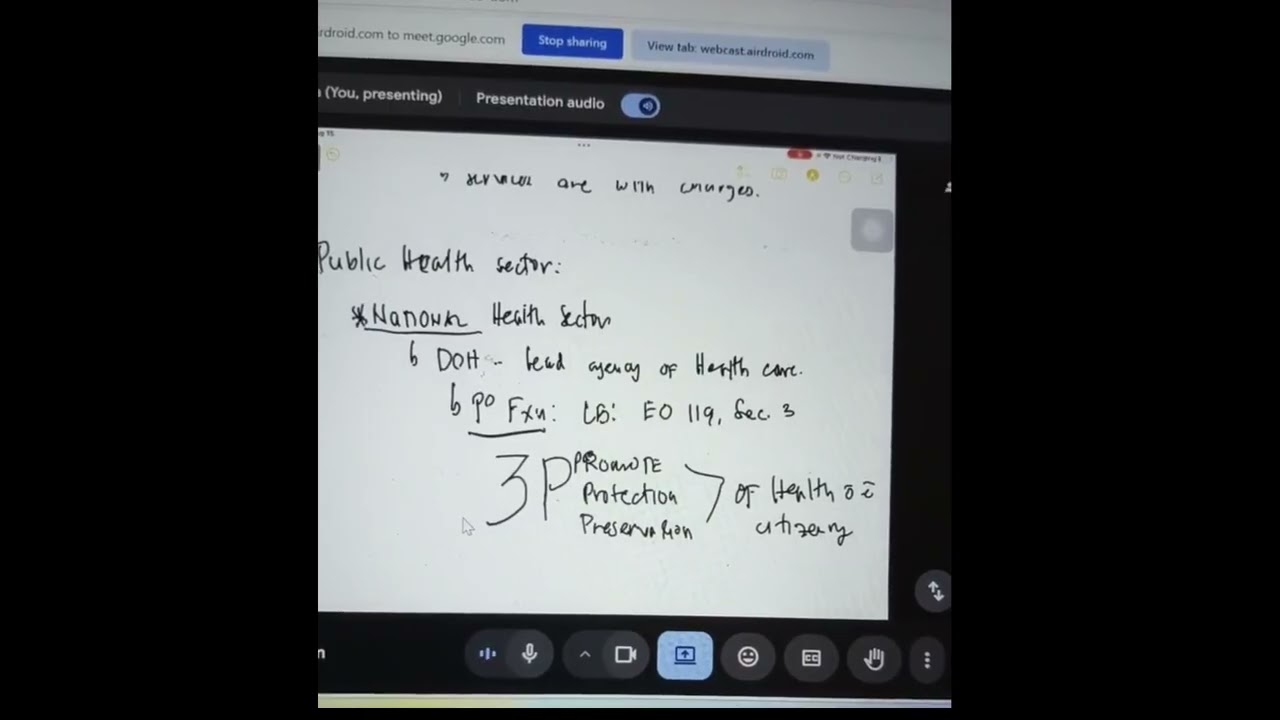 rdroid.com to meet.google.com Stop sharing View tab: webcast.airdroid.com
(You, presenting) Presentation audio
Not Charging
services are with charges.
Public Health sector:
*National Health Sector
DOH - lead agency of Health care.
1º Fxn: LB: EO 119, Sec. 3
3P PROMOTE
Protection
Preservation
OF Health
citizenry